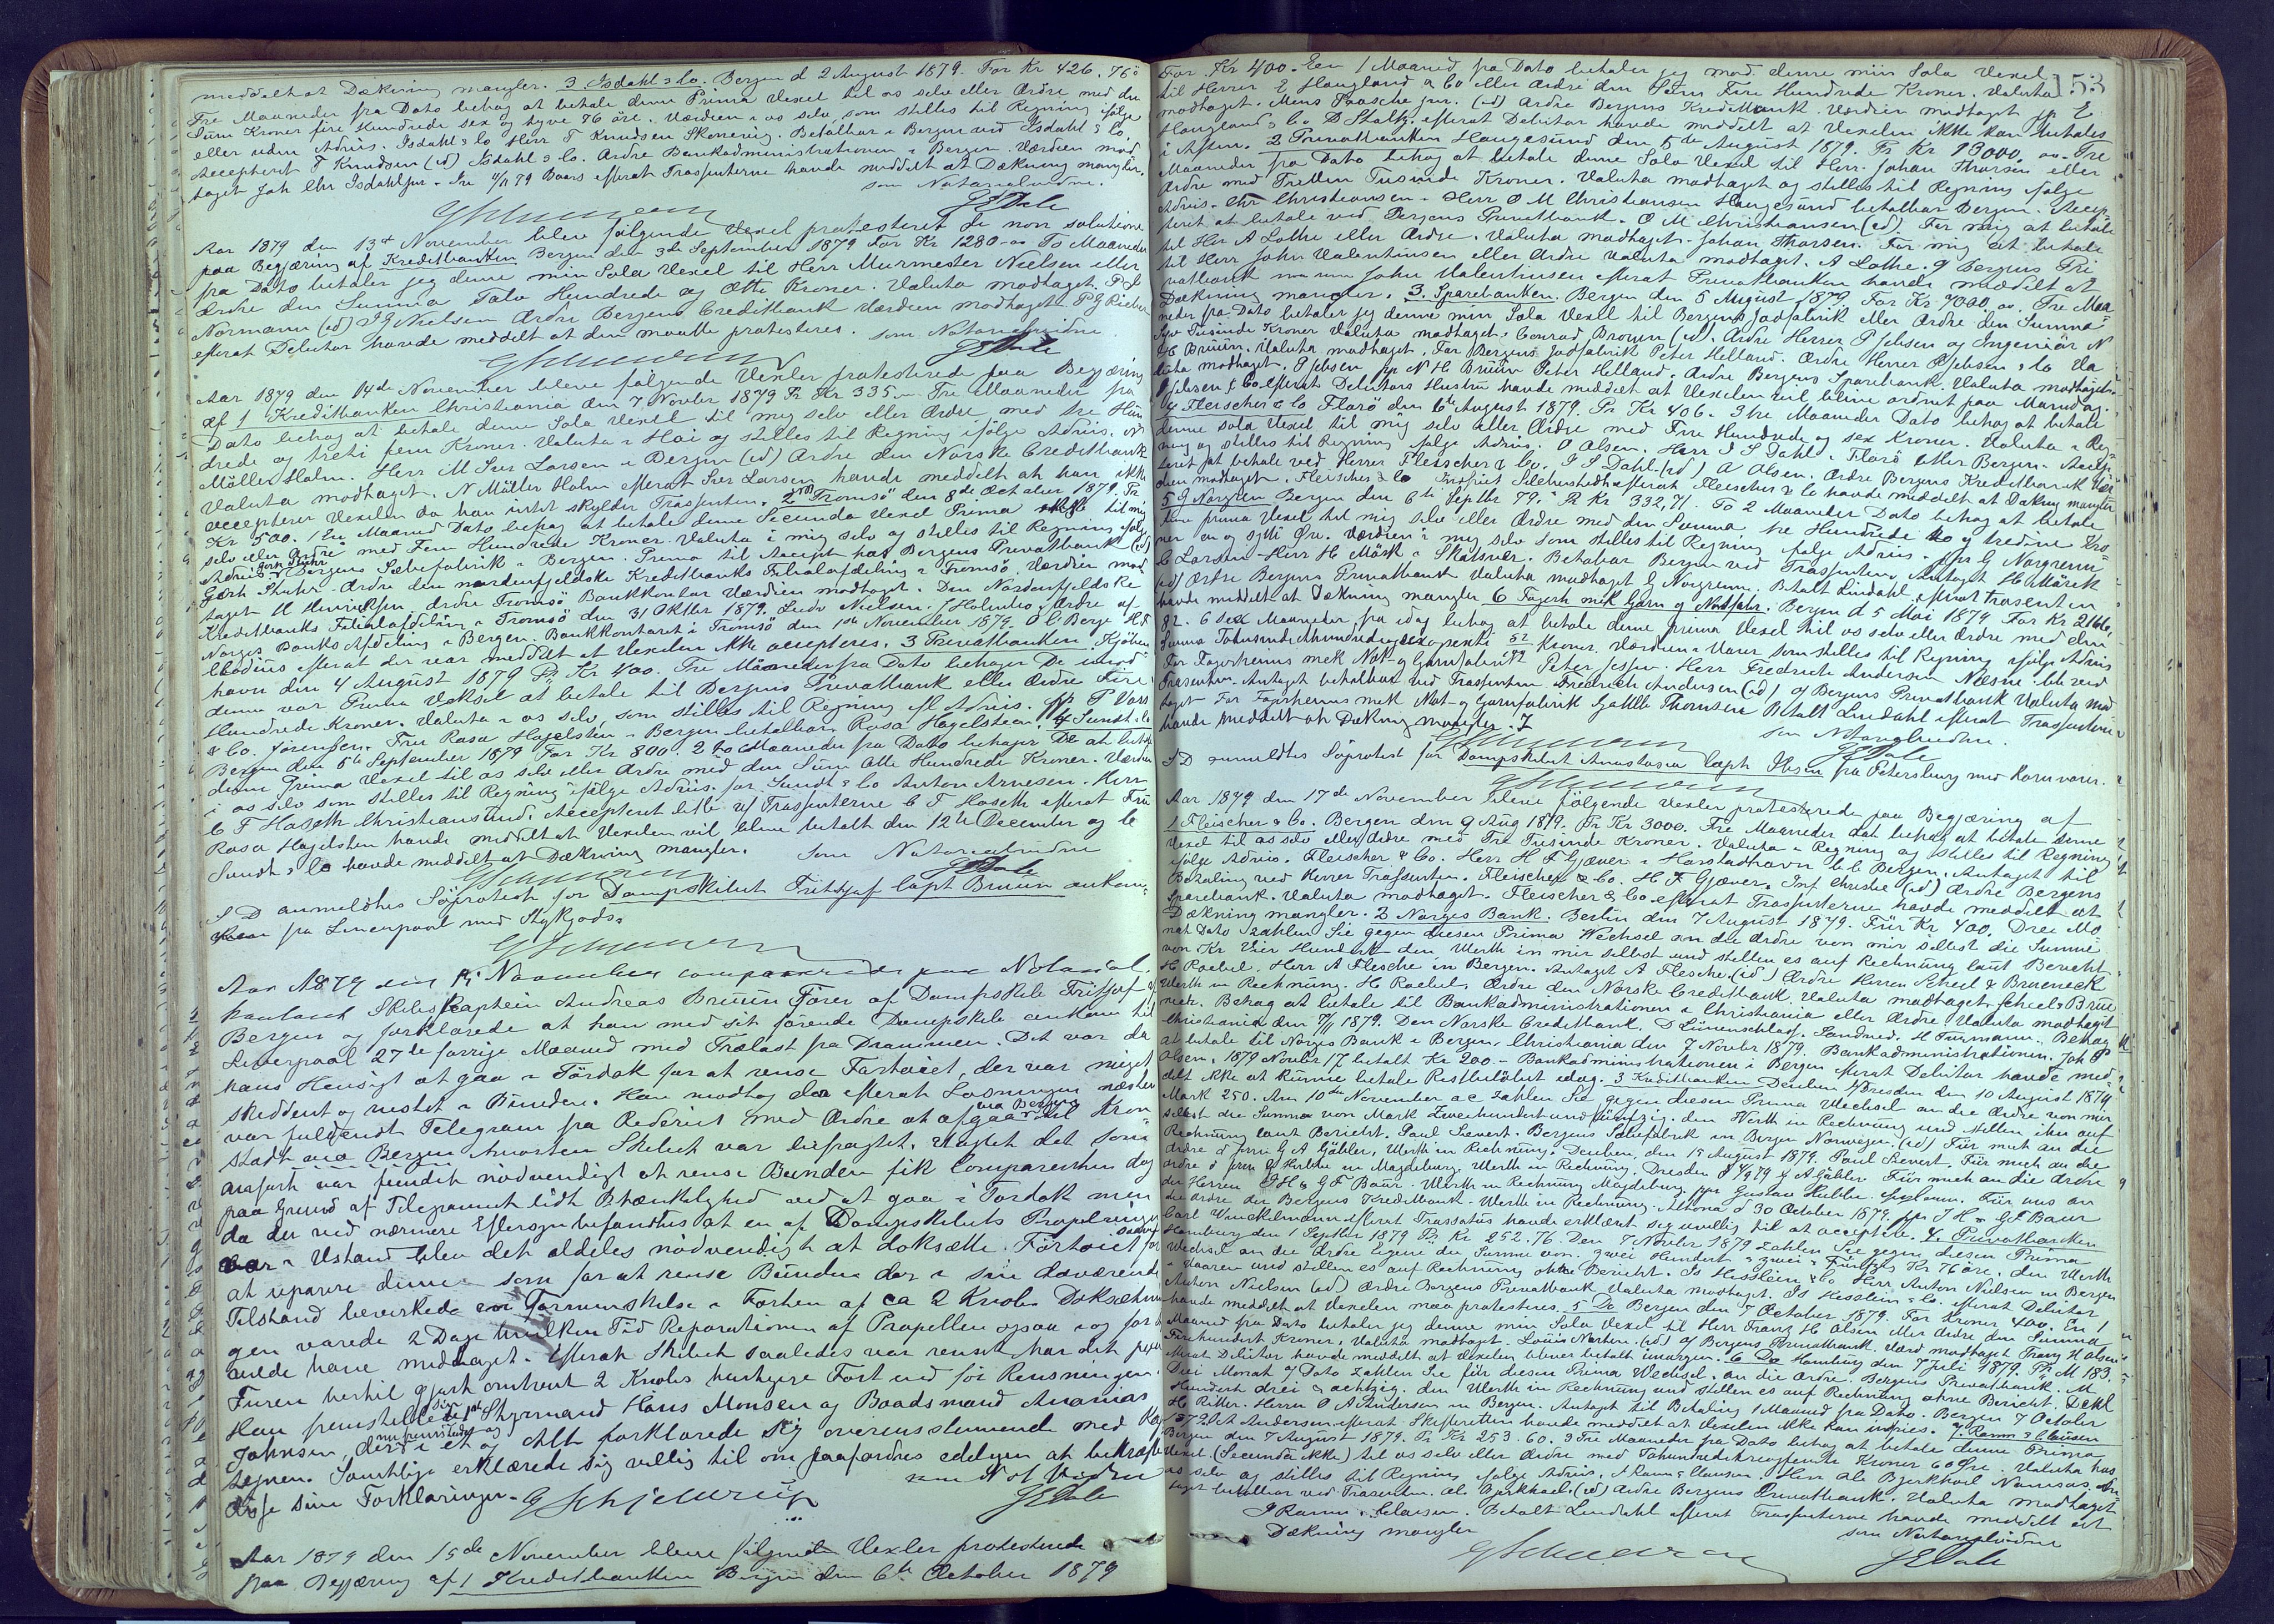 meddelt at Dækning mangler. 3. Isdahl & Co. Bergen d 2 August 1879. For Kr 426. 76ö
Tre Maaneder fra Dato behag at betale denne Prima Vexel til os selv eller Ordre med den
Sum Kroner fire Hundrede sex og tyve 76 öre. Værdien i os selv, som stilles til Regning ifölge
eller uden Advis. Isdahl & Co Herr T Knudsen Skonevig. Betalbar i Bergen ved Isdahl & Co.
Accepteret T Knudsen (ed) Isdahl & Co. Ordre Bankadministrationen i Bergen. Værdien mod
taget Joh Chr Isdahl jun. 79 efterat Trassenterne havde meddelt at Dækning mangler.
som Notarialvidne.
JEDale
Aar 1879 den 13de November bleve følgende Vexel protesteret de non solutione
paa Begjæring af Kreditbanken Bergen den 3de September 1879 For Kr 1280 - To Maaneder
fra Dato betaler jeg denne min Sola Vexel til Herr Murmester Nielsen eller
Ordre den Summa Tolv Hundrede og Otti Kroner. Valuta modtaget. P J
Normann (ed) Nielsen Ordre Bergens Creditbank Værdien modtaget
efterat Debitor havde meddelt at den maatte protesteres. som Notarialvidne
JEDale
Aar 1879 den 14de November bleve følgende Vexler protesterede paa Begjæring
af 1 Kreditbanken Christiania den 7 Novbr 1879 Pr Kr 335. Tre Maaneder fra
Dato behag at betale denne Sola Vexel til mig selv eller Ordre med tre Hun
drede og treti fem Kroner. Valuta i Hai og stilles til Regning ifölge Advis. N
Möller Holm. Herr M Iver Larsen i Bergen (ed) Ordre den Norske Creditbank
Valuta modtaget. N Möller Holm efterat Iver Larsen havde meddelt at han ikke
accepterer Vexelen da han intet skylder Trassenten. 2 Tromsö den 8de October 1879. Pr
Kr 500. 1 En Maaned Dato behag at betale denne Secunda Vexel Prima ikke til mig
selv eller Ordre med Fem Hundrede Kroner. Valuta i mig selv og stilles til Regning ifölge
Advis Bergens Sæbefabrik i Bergen. Prima til Accept hos Bergens Privatbank (ed)
Ordre den nordenfjeldske Kreditbanks Filialafdeling i Tromsö. Værdien mod
taget ordre Tromsö Bankkontor Værdien modtaget. Den Nordenfjeldske
Kreditbanks Filialafdeling i Tromsö den 31 Oktbr 1879. Ludv Nielsen. / Holmboe. Ordre af
Norges Banks Afdeling i Bergen. Bankkontoret i Tromsö den 1ste November 1879. O C Berge
efterat der var meddelt at Vexelen ikke accepteres. 3 Privatbanken. Kjöben
havn den 4 August 1879 Pr Kr 400. Tre Maaneder fra Dato behager De imod
denne vor Prima Veksel at betale til Bergens Privatbank eller Ordre Fire
Hundrede Kroner. Valuta i os selv, som stilles til Regning efl Advis. P Voss
& Co. Jörensen. Fru Rosa Hagelsteen i Bergen betalbar. Rosa Hagelsteen. 4 Sundt & Co
Bergen den 5te September 1879 For Kr 800. 2 to Maaneder fra Dato behager De at betale
denne Prima Vexel til os selv eller Ordre med den Sum Otte Hundrede Kroner. Værdien
i os selv som stilles til Regning ifölge Advis. for Sundt & Co Anton Arnesen. Herr
C F Hoseth Christiansund. Accepteret Trassenterne C F Hoseth efterat Fru
Rosa Hagelsten havde meddelt at Vexelen vil blive betalt den 12te December og C
Sundt & Co havde meddelt at Dækning mangler. Som Notarialvidne
JEDale
S D anmeldtes Söprotest for Dampskibet Fritdjof Capt Bruun ankom
fra Liverpool med Stykgods.
Aar 1879 den 15 November comparerede paa Notarial
kontoret Skibskaptein Andreas Bruun Förer af Dampskib Fritjof af
Bergen og forklarede at han med sit förende Dampskib ankom til
Liverpool 27de forrige Maaned med Trælast fra Drammen. Det var da
hans Hensigt at gaa i Tördok for at rense Fartöiet, der var meget
skiddent og rustet i Bunden. Han modtog da efterat Losningen næsten
var fuldendt Telegram fra Rederiet med Ordre at afgaa via Bergen til Kron
stadt via Bergen hvorfor Skibet var befragtet. Uagtet det som
anfört var fundet nödvendigt at rense Bunden fik Comparenten dog
paa Grund af Telegramet lidt Betænkelighed ved at gaa i Tördok men
da der ved nærmere Eftersyn befandtes at en af Dampskibets Propelvinger
var i Ustand blev det aldeles nödvendigt at doksætte Fartöiet saavel for
at reparere denne som for at rense Bunden der i sin daværende
Tilstand bevirkede en Formindskelse i Farten af ca 2 Knob. Doksætnin
gen varede 2 Dage hvilken Tid Reparationen af Propellen ogsaa i og for
vilde have medtaget. Efterat Skibet saaledes var renset har det paa
Turen hertil gjort omtrent 2 Knobs hurtigere Fart end för Rensningen.
Han fremstillede sin Styrmand Hans Monsen og Baadsmand Ananias
Johnsen, der i et og Alt forklarede sig overensstemmende med Kap
teinen. Samtlige erklærede sig villig til om paafordres edelgen at bekræfte
disse sine Forklaringer. G Schjelderup
som Not Vidne
JEDale
Aar 1879 den 15de November bleve følgende Vexler protesterede
paa Begjæring af 1 Kreditbanken Bergen den 6te October 1879
153
For Kr 400. Een 1 Maaned fra Dato betaler jeg mod denne min Sola Vexel
til Herrer E Haugland & Co eller Ordre den Sum Fire Hundrede Kroner. Valuta
modtaget. Mons Paasche jun. (ed) Ordre Bergens Kreditbank. Værdien modtaget pp E
Haugland & Co D Stoltz. efterat Debitor havde meddelt at Vexelen ikke kan betales
i Aften. 2 Privatbanken Haugesund den 5te August 1879. Pr Kr 13000. Tre
Maaneder fra Dato behag at betale denne Sola Vexel til Herr Johan Thorsen eller
Ordre med Tretten Tusinde Kroner. Valuta modtaget og stilles til Regning ifølge
Advis. Chr Christiansen. Herr O M Christiansen Haugesund betalbar Bergen. Accep
teret at betale ved Bergens Privatbank. O M Christiansen (ed). For mig at betale
til Herr A Lothe eller Ordre. Valuta modtaget. Johan Thorsen. For mig at betale
til Herr John Valentinsen eller Ordre Valuta modtaget. A Lothe. Bergens Pri
vatbank John Valentinsen efterat Privatbanken havde meddelt at
Dækning mangler. 3. Sparebanken. Bergen den 5 August 1879. For Kr 7000. Tre Maa
neder fra Dato betaler jeg denne min Sola Vexel til Bergens Jodfabrik eller Ordre den Summa
Syv Tusinde Kroner Valuta modtaget. Conrad Brown (ed). Ordre Herrer P Jebsen og Ingeniör N
H Bruun. Valuta modtaget. For Bergens Jodfabrik Peter Helland. Ordre Herrer P Jebsen & Co Va
luta modtaget. P Jebsen pp N H Bruun Peter Helland. Ordre Bergens Sparebank. Valuta modtaget.
P Jebsen & Co. efterat Debitors Hustru havde meddelt at Vexelen vil blive ordnet paa Mandag.
4 Fleischer & Co Florö den 6te August 1879. Pr Kr 406. 3 tre Maaneder Dato behag at betale
denne sola Vexel til mig selv eller Ordre med Fire Hundrede og sex Kroner. Valuta i Reg
ning og stilles til Regning ifølge Advis. O Olsen. Herr J S Dahl. Florö eller Bergen. Accep
teret at betale ved Herrer Fleischer & Co. J S Dahl. (ed) O Olsen. Ordre Bergens Kreditbank Vær
dien modtaget. Fleischer & Co efterat Fleischer & Co havde meddelt at Dækning mangler
5 G Norgreen Bergen den 6te Septbr 79. Pr Kr 332,71. To 2 Maaneder Dato behag at betale
denne prima Vexel til mig selv eller Ordre med den Summa tre Hundrede to og tredive Kro
ner en og sytti Öre. Værdien i mig selv som stilles til Regning ifølge Advis. for G Norgreen
C Larsen. Herr H Mörk i Skatsvær. Betalbar Bergen ved Trassenten. Antaget H Mörck
(ed) Ordre Bergens Privatbank Valuta modtaget G Norgreen. Betalt Lindahl, efterat Trasenten
havde meddelt at Dækning mangler 6 Fagerh mek Garn og Notfabr. Bergen d 5 Mai 1879 For Kr 2166,
82. 6 Sex Maaneder fra idag behag at betale denne prima Vexel til os selv eller Ordre med den
Summa Totusinde ethundrede sexogsexti 82 Kroner. Værdien i Varer som stilles til Regning ifølge Advis
For Fagerheims mek Not- og Garnfabrik Peter Jessen. Herr Fredrich Andersen Næsne btb ved
Trasenten. Antaget betalbar ved Trassenten Fredrich Andersen (ed) og Bergens Privatbank Valuta mod
taget For Fagerheims mek Not og Garnfabrik Gottlb Thomsen Betalt Lindahl efterat Trassenten
havde meddelt at Dækning mangler.
som Notarialvidne.
JEDale
S D anmeldtes Söprotest for Dampskibet Anastasia Capt Ibsen fra Petersburg med Kornvarer.
Aar 1879 den 17de November bleve følgende Vexler protesterede paa Begjæring af
1 Fleischer & Co. Bergen den 9 Aug 1879. Pr Kr 3000. Tre Maaneder dat behag at betale denne
Vexel til os selv eller Ordre med Tre Tusinde Kroner. Valuta i Regning og stilles til Regning
ifölge Advis. Fleischer & Co. Herr H F Gjæver i Harstadhavn btb Bergen. Antaget til
Betaling ved Herrer Trassenten. Fleischer & Co. H F Gjæver. Int Christie (ed) Ordre Bergens
Sparebank. Valuta modtaget. Fleischer & Co. efterat Trassenterne havde meddelt at
Dækning mangler. 2 Norges Bank. Berlin den 7 August 1879. Für Kr 400. Drei Mo
nat dato zahlen Sie gegen diesen Prima Wechsel an die Ordre von mir selbst die Summe
von Kr Vier Hundert den Werth in mir selbst und stellen es auf Rechnung laut Bericht
H Roebel. Herr A Flesche in Bergen. Antaget A Flesche. (ed) Ordre Herren Scheel & Brueneck
Werth in Rechnung. H Roebel. Ordre den Norske Creditbank. Valuta modtaget. Scheel & Brue
neck. Behag at betale til Bankadministrationen i Christiania eller Ordre. Valuta modtaget
Christiania den 7/11 1879. Den Norske Creditbank. D Lünenschloss. Sandved. H Furmann. Behag
at betale til Norges Bank i Bergen. Christiania den 7 Novbr 1879. Bankadministrationen. Joh P
Olsen. 1879 Novbr 17 betalt Kr 200. - Bankadministrationen i Bergen efterat Debitor havde med
delt ikke at kunne betale Restbelöbet idag. 3 Kreditbanken Deuben b/Dresden den 10 August 1879
Mark 250. Am 10de November a c zahlen Sie gegen diesen Prima Wechsel an die Ordre von mir
selbst die Summa von Mark Zweihundertundfünfzig den Werth in Rechnung und stellen ihn auf
Rechnung laut Bericht. Paul Sievert. Bergens Sæbefabrik in Bergen Norwegen. (ed) Für mich an die
Ordre d Herrn G A Gäbler, Werth in Rechnung. Deuben, den 15 August 1879. Paul Sievert. Für mich an die
Ordre d Hern G Hubbe in Magdeburg. Werth in Rechnung. Dresden d 4/9 79 G A Gäbler Für mich an die Ordre
der Herren J H & G F Baur. Werth in Rechnung Magdeburg. ppr Gustav Hubbe. Für uns an
die Ordre der Bergens Kreditbank. Werth in Rechnung. Altona d 30 October 1879. ppr J H & G F Baur
Carl Winckelmann efterat Trassatus havde erklæret sig uvillig til at acceptere. 4. Privatbanken
Hamburg den 1 Septbr 1879 Pr Kr 252.76. Den 7 Novbr 1879 zahlen Sie gegen diesen Prima
Wechsel an die Ordre Eigene die Summe von zwei Hundert & zwei & Fünfzig Kr 76 öre. den Werth
in Waaren und stellen es auf Rechnung ohne Bericht. Is Hesslein & Co Herr Anton Nielsen in Bergen
Anton Nielsen (ed) Ordre Bergens Privatbank Valuta modtaget. Is Hesslein & Co. efterat Debitor
havde meddelt at Vexelen maa protesteres. 5 Do Bergen den 7 October 1879. For Kroner 400. En 1
Maaned fra Dato betaler jeg denne min Sola Vexel til Herr Franz H Olsen eller Ordre den Summa
Firehundret Kroner. Valuta modtaget. Louis Northen. (ed) og Bergens Privatbank. Værd modtaget Franz H Olsen
efterat Debitor havde meddelt at Vexelen bliver betalt imorgen. 6 Do Hamburg den 7 Juli 1879. Pr M 183.
Drei Monat a/ Dato zahlen Sie für diesen Prima Wechsel an die Ordre Bergens Privatbank. M
Hundert drei & achtzig. den Werth in Rechnung und stellen es auf Rechnung ohne Bericht.
H Ritter. Herrn O A Andersen in Bergen. Antaget til Betaling 1 Maaned fra Dato. Bergen 7 October
1879 Andersen efterat Skifteretten havde meddelt at Vexelen ikke kan indfries. 7. Ramm & Clausen
Bergen den 7 August 1879. Pr Kr 253.60. 3 Tre Maaneder fra Dato behag at betale denne Prima
Vexel (Secunda ikke) til os selv eller Ordre med Tohundredetreogfemti Kroner 60 Öre. Valuta hos
os selv og stilles til Regning ifölge Advis. J Ramm & Clausen. Herr Ole Bjerkhoel Namsos. An
taget betalbar ved Trasenten. Ole Bjerkhoel. (ed) Ordre Bergens Privatbank. Valuta modtaget
J Ramm & Clausen. Betalt Lindahl efterat Trassenterne havde meddelt at
Dækning mangler
som Notarialvidne
JEDale